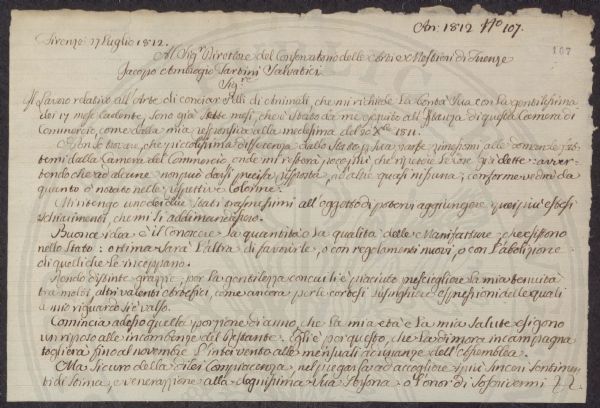 An: 1812 No 107.
107
Firenze 17 Luglio 1812.
Al Sigr Direttore del Conservatorio delle Arti e Mestieri di Firenze
Jacopo Ambrogio Tartini Salvatici
Sigre
Il Lavoro relativo all'Arte di conciar Pelli di Animali, che mi richiede La Bontà Sua con La gentilissima
dei 17 mese cadente, sono già sette mesi, che è stato da me eseguito all'Istanza di questa Camera di
Commercio, come dalla mia responsiva alla medesima del 20 Xbre 1811.
differenza dallo Stato, alle domande
temi dalla Camera del Commercio, onde mi resterà poco più che ripetere Le cose già dette: avver-
tendo che ad alcune non può darsi precisa risposta, ed altre quasi nissuna; conforme vedrà da
quanto è notato nelle rispettive Colonne.
Mi ritengo uno dei due Stati trasmessimi all'oggetto di potervi aggiungere quei più estesi
schiarimenti che mi si addimandassero.
Buona idea è il conoscere La quantità e La qualità delle Manifatture, che esistono
nello Stato: ottima sarà L'altra di favorirle, o con regolamenti nuovi, o con L'abolizione
di quelli che le inceppano.
Rendo distinte grazie, per La gentilezza con cui Li è piaciuto prescegliere La mia tenuità
tra molti, altri valenti come ancora per le cortesi lusinghiere espressioni delle quali
a mio riguardo si è valso.
Comincia adesso quella porzione di anno, che La mia età e La mia salute esigono
un riposo alle incombenze del restante. Egli è per questo, che La dimora in campagna
toglierà fino al novembre L'intervento alle mensuali adunanze dell'Assemblea.
Ma sicuro della di Lei Compiacenza, nel pregarla ad accogliere i più sinceri sentimen-
ti di stima, e venerazione alla degnissima Sua Persona, ò L'onor di soscrivermi